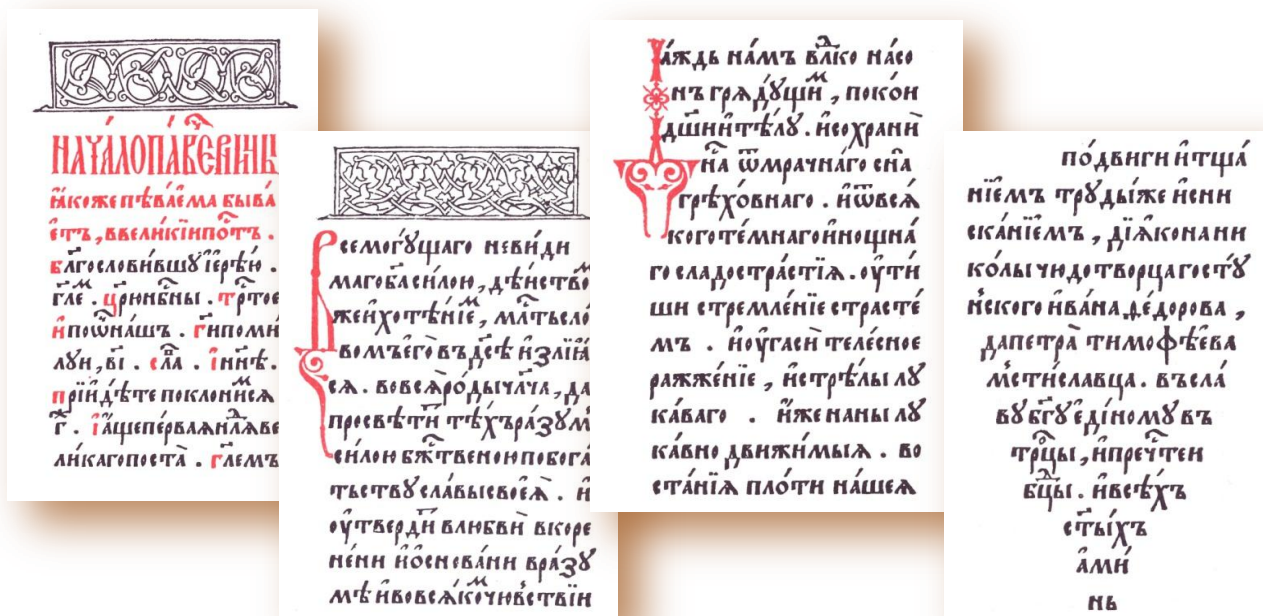 НАЧА́ЛО ПАВЕЧЕ́РНИЦЫ
ꙗ҆́коже пѣва́ема быва́
етъ, ввели́кїи по́стъ .
бл҃гослови́вшꙋ і҆ере́ю .
гл҃е . цр҃ю нбⷭ҇ны . трⷭ҇тое
и҆ по ѿ на́шъ . г҃и поми́
лꙋи, в҃і . сла̑ . і҆ ни́нѣ .
прїиди́те поклони́мсѧ
г҃ . і҆ а҆́ще пе́рваѧ нлⷣѧ ве
ли́каго поста̀ . гл҃емъ
всемогꙋ́щаго неви́ди
маго бг҃а си́лою, дѣ́иство
же и҆ хотѣ́нїе, млтⷭ҇ь сло́
вомъ є҆го̀ въздѣ и҆злїѧ́
сѧ . во всѧ ро́ды чл҃ча, да
просвѣти́ тѣ́хъ ра́зꙋм
си́лою бжⷭ҇твеною по бога́
тьствꙋ сла́вы своеѧ̀ . и҆
оу҆тверди́ в любвѝ вкоре
не́ни и҆ ѡ҆снова́ни в ра́зꙋ
мѣ и҆ во всѧ́ком чю́вьствїи
да́ждь на́мъ влⷣко на́ со
нъ грѧдꙋ́щим , поко́и
дш҃и и҆ тѣ́лꙋ . и҆ сохрани̑
на̑ ѿ мра́чнаго сна̀
грѣхо́внаго . и҆ ѿ всѧ́
кого те́мнаго и҆ нощна́
го сладостра́стїѧ . оу҆ти
ши стремле́нїе страсте́
мъ . и҆ оу҆гаси̑ теле́сное
ражже́нїе , и҆ стрѣ́лы лꙋ
ка́ваго . и҆́же на ны лꙋ
ка́вно дви́жимыѧ . во
ста́нїѧ пло́ти на́шеѧ
по́двиги и҆ тща́
нїемъ трꙋды́ же и҆ сни
ска́нїемъ , дїѧ́кона ни
ко́лы чюдотво́рца гостꙋ́
нского и҆ва́на ѳе́дорова ,
да петра̀ тимофѣ́ева
мсти́славца . въ сла́
вꙋ бг҃ꙋ е҆ди́номꙋ въ
трⷪ҇цы , и҆ пречтⷭ҇еи
бцⷣы . и҆ всѣ́хъ
ст҃ы́хъ
а҆ми́
нь